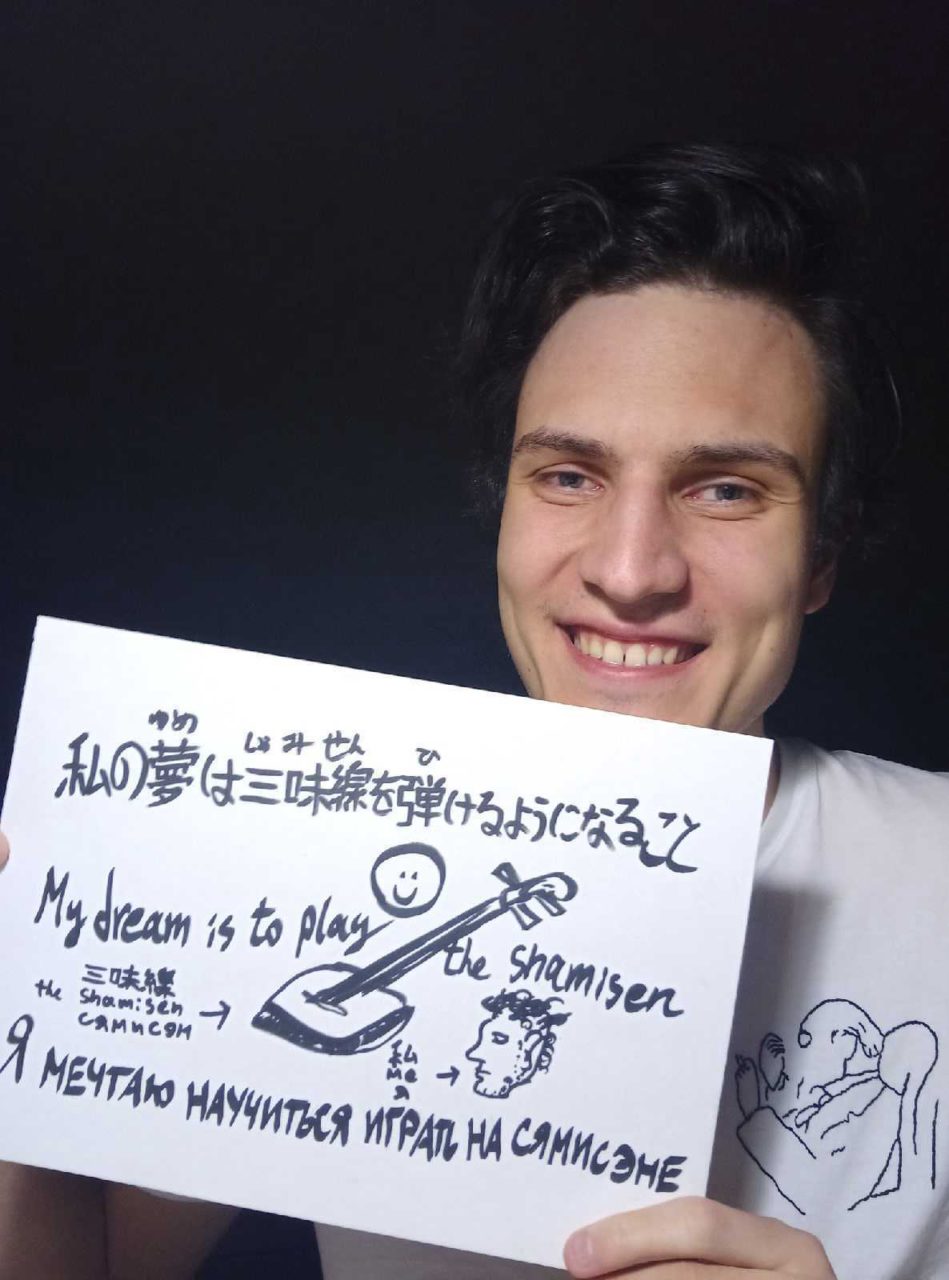 ゆめ しゃみ せん ひ
私の夢は三味線を弾けるようになること
My dream is to play
the shamisen
三味線
the shamisen
сямисэн
私
me
я
Я МЕЧТАЮ НАУЧИТЬСЯ ИГРАТЬ НА СЯМИСЭНЕ